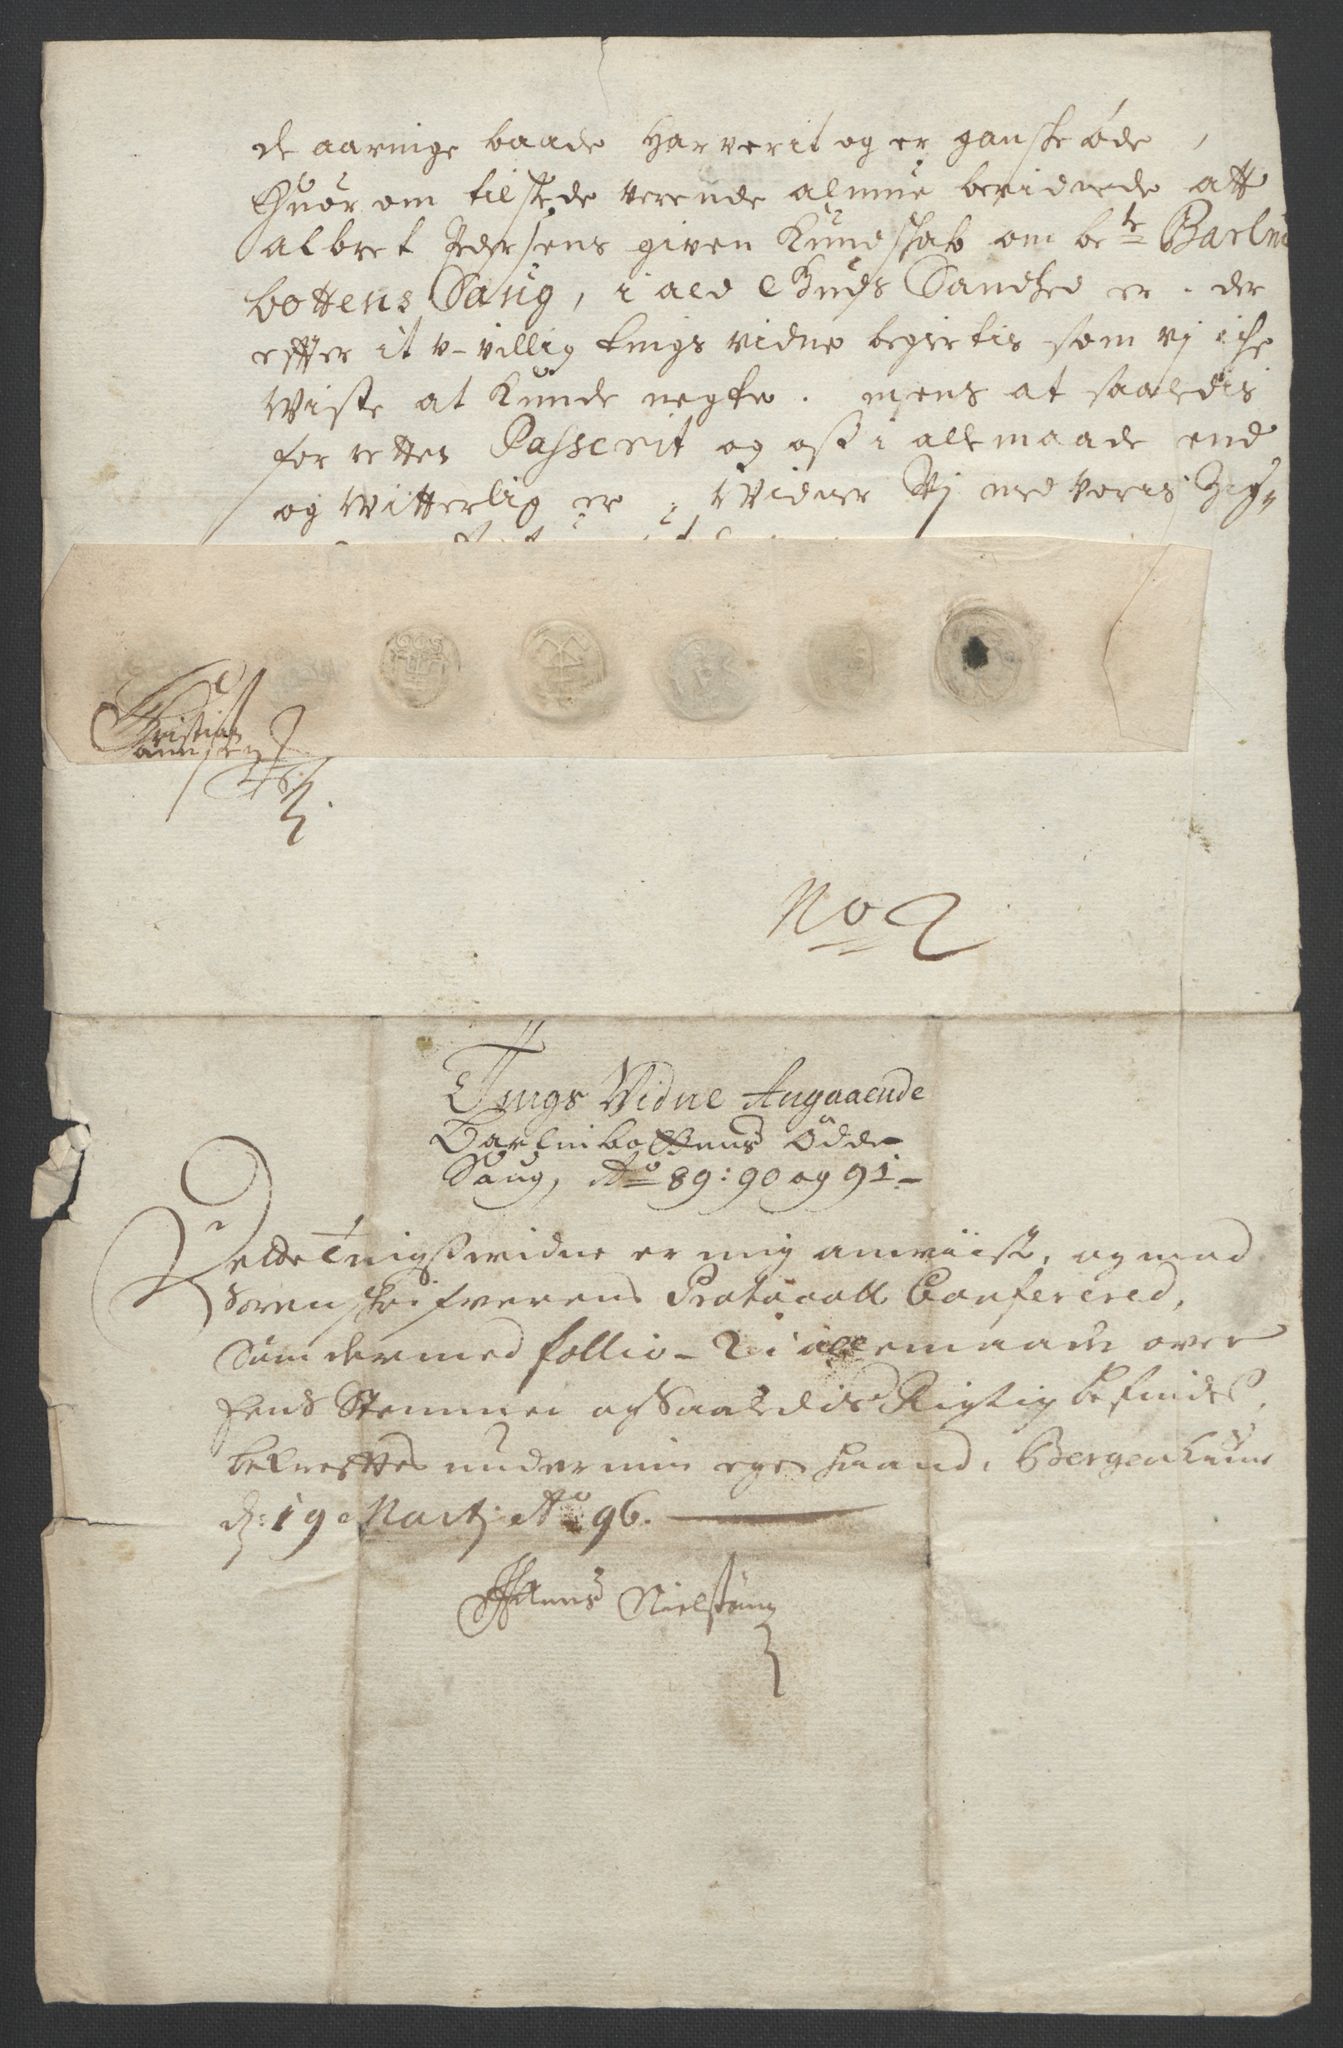 de aaringe baade Harverit og er ganske øde,
Huor om tilstede verende almue bevidnede att
albret Pedersens given Kundskab om be<sup>te</sup> Barlin
bottens Saug, i ald Guds Sandhed er. der
effter it u-villig tings vidne begiertis som vj iche
Wiste at Kunde negte. mens at saaledis
for retten Passerit og oss i alle maade end
og Witterlig er, Vidner Vj med voris Zig„
Christian
Anne sen
No 2
Tings Vidne Angaaende
Barlinbottens Ödde
Saug, A<sup>o</sup> 89: 90 og 91-
Dette Tingsvidne er mig anviist, og med
Sorenskrifverens Protocoll Conferered,
Som dermed follio - 2 i alle maade over
Eens Stemmer og Saaledis Rigtig befindes,
bekreffter under min egen Haand, Bergenhuus
d: 19 Martj A<sup>o</sup> 96.
Hans Nielsøn